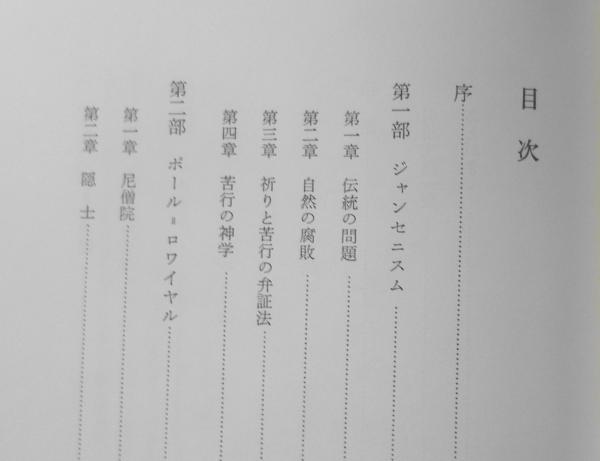 目次
序
第一部 ジャンセニスム
第一章 伝統の問題
第二章 自然の腐敗
第三章 祈りと苦行の弁証法
第四章 苦行の神学
第二部 ポール＝ロワイヤル
第一章 尼僧院
第二章 隠士